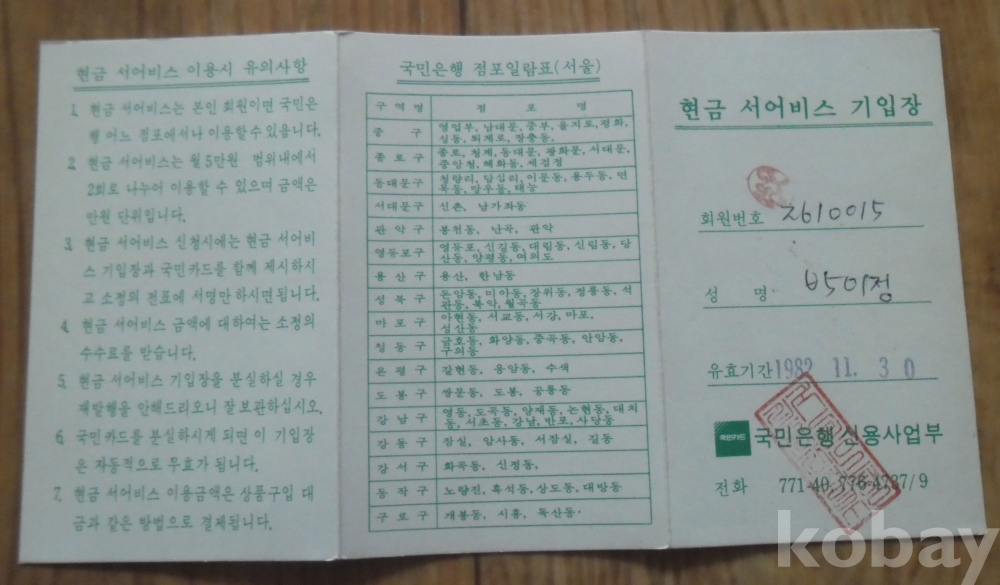 현금 서어비스 이용시 유의사항
1. 현금 서어비스는 본인 회원이면 국민은
행 어느 점포에서나 이용할 수 있읍니다.
2. 현금 서어비스는 월 5만원 범위내에서
2회로 나누어 이용할 수 있으며 금액은
만원 단위입니다.
3. 현금 서어비스 신청시에는 현금 서어비
스 기입장과 국민카드를 함께 제시하시
고 소정의 전표에 서명만 하시면됩니다.
4. 현금 서어비스 금액에 대하여는 소정의
수수료를 받습니다.
5. 현금 서어비스 기입장을 분실하실 경우
재발행을 안해드리오니 잘 보관하십시오.
6. 국민카드를 분실하시게 되면 이 기입장
은 자동적으로 무효가 됩니다.
7. 현금 서어비스 이용금액은 상품구입 대
금과 같은 방법으로 결제됩니다.
국민은행 점포일람표(서울)
구역명 점포명
중구 영업부, 남대문, 중부, 을지로, 평화,
퇴계로, 장충동,
종로구 종로, 청계, 동대문, 광화문, 서대문,
중앙청, 혜화동, 세검정
동대문구 청량리, 답십리, 이문동, 용두동, 면
목동, 망우동, 태능
서대문구 신촌, 남가좌동
관악구 봉천동, 난곡, 관악
영등포구 영등포, 신길동, 대림동, 신림동, 당
산동, 양평동, 여의도
용산구 용산, 한남동
성북구 돈암동, 미아동, 장위동, 정릉동, 석
관동, 북악, 월곡동
마포구 아현동, 서교동, 서강, 마포,
성산동
성동구 금호동, 화양동, 중곡동, 안암동,
구의동
은평구 갈현동, 응암동, 수색
도봉구 쌍문동, 도봉, 공릉동
강남구 영동, 도곡동, 양재동, 논현동, 대치
동, 서초동, 강남, 반포, 사당동
강동구 잠실, 암사동, 서잠실, 길동
강서구 화곡동, 신정동,
동작구 노량진, 흑석동, 상도동, 대방동
구로구 개봉동, 시흥, 독산동
현금 서어비스 기입장
회원번호 2610015
성명
유효기간 1982 11. 30
국민카드 국민은행 신용사업부
전화 771-40, 776-4727/9
kobay